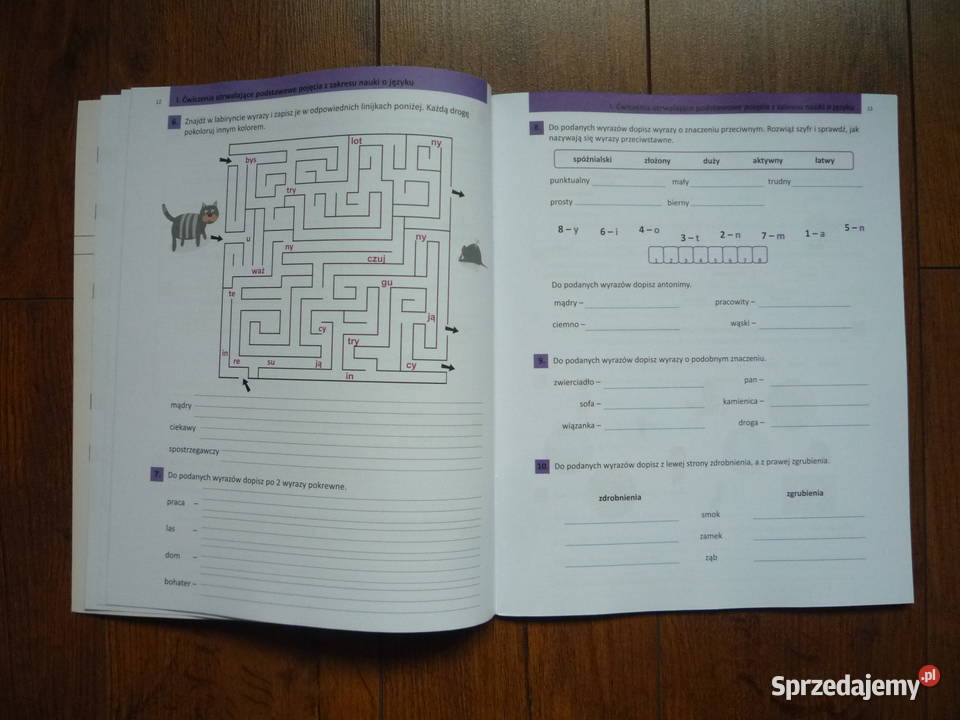 12
I. Ćwiczenia utrwalające podstawowe pojęcia z zakresu nauki o języku
6. Znajdź w labiryncie wyrazy i zapisz je w odpowiednich linijkach poniżej. Każdą drogę
pokoloruj innym kolorem.
lot
ny
bys
try
u
ny
ny
czuj
waż
gu
te
ją
cy
try
in
re
su
ją
cy
in
mądry
ciekawy
spostrzegawczy
7. Do podanych wyrazów dopisz po 2 wyrazy pokrewne.
praca –
las –
dom –
bohater –
I. Ćwiczenia utrwalające podstawowe pojęcia z zakresu nauki o języku
13
8. Do podanych wyrazów dopisz wyrazy o znaczeniu przeciwnym. Rozwiąż szyfr i sprawdź, jak
nazywają się wyrazy przeciwstawne.
spóźnialski złożony duży aktywny łatwy
punktualny mały trudny
prosty bierny
8 – y 6 – i 4 – o 3 – t 2 – n 7 – m 1 – a 5 – n
1 2 3 4 5 6 7 8
Do podanych wyrazów dopisz antonimy.
mądry – pracowity –
ciemno – wąski –
9. Do podanych wyrazów dopisz wyrazy o podobnym znaczeniu.
zwierciadło – pan –
sofa – kamienica –
wiązanka – droga –
10. Do podanych wyrazów dopisz z lewej strony zdrobnienia, a z prawej zgrubienia.
zdrobnienia zgrubienia
smok
zamek
ząb
Sprzedajemy.pl